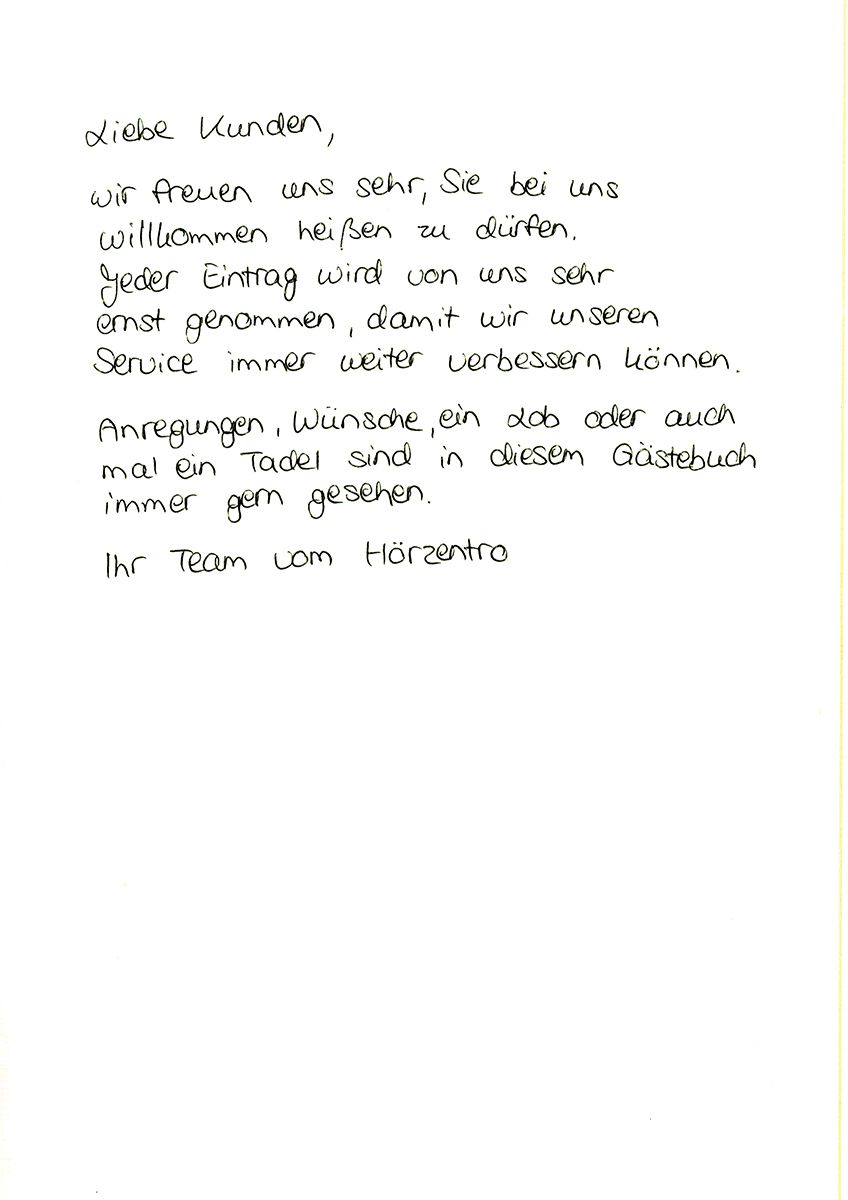 Liebe Kunden,
wir freuen uns sehr, Sie bei uns
willkommen heißen zu dürfen.
Jeder Eintrag wird von uns sehr
ernst genommen, damit wir unseren
Service immer weiter verbessern können.
Anregungen, Wünsche, ein Lob oder auch
mal ein Tadel sind in diesem Gästebuch
immer gern gesehen.
Ihr Team vom Hörzentro